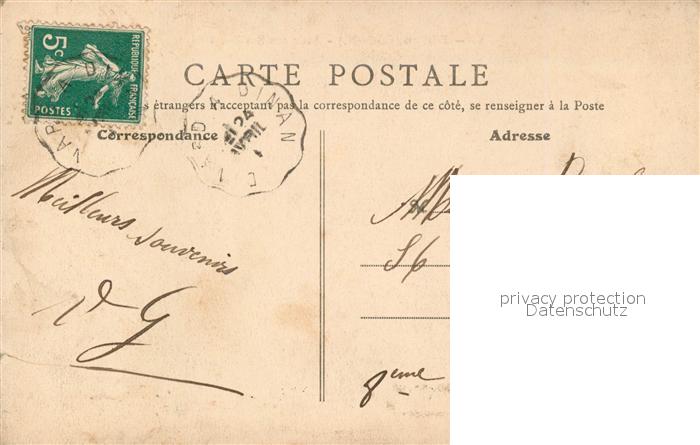 5c
RÉPUBLIQUE FRANÇAISE
POSTES
CARTE POSTALE
s étrangers n'acceptant pas la correspondance de ce côté, se renseigner à la Poste
Correspondance
Adresse
DINAN
24
AVRIL
Meilleurs
souvenirs
G
8eme
privacy protection
Datenschutz